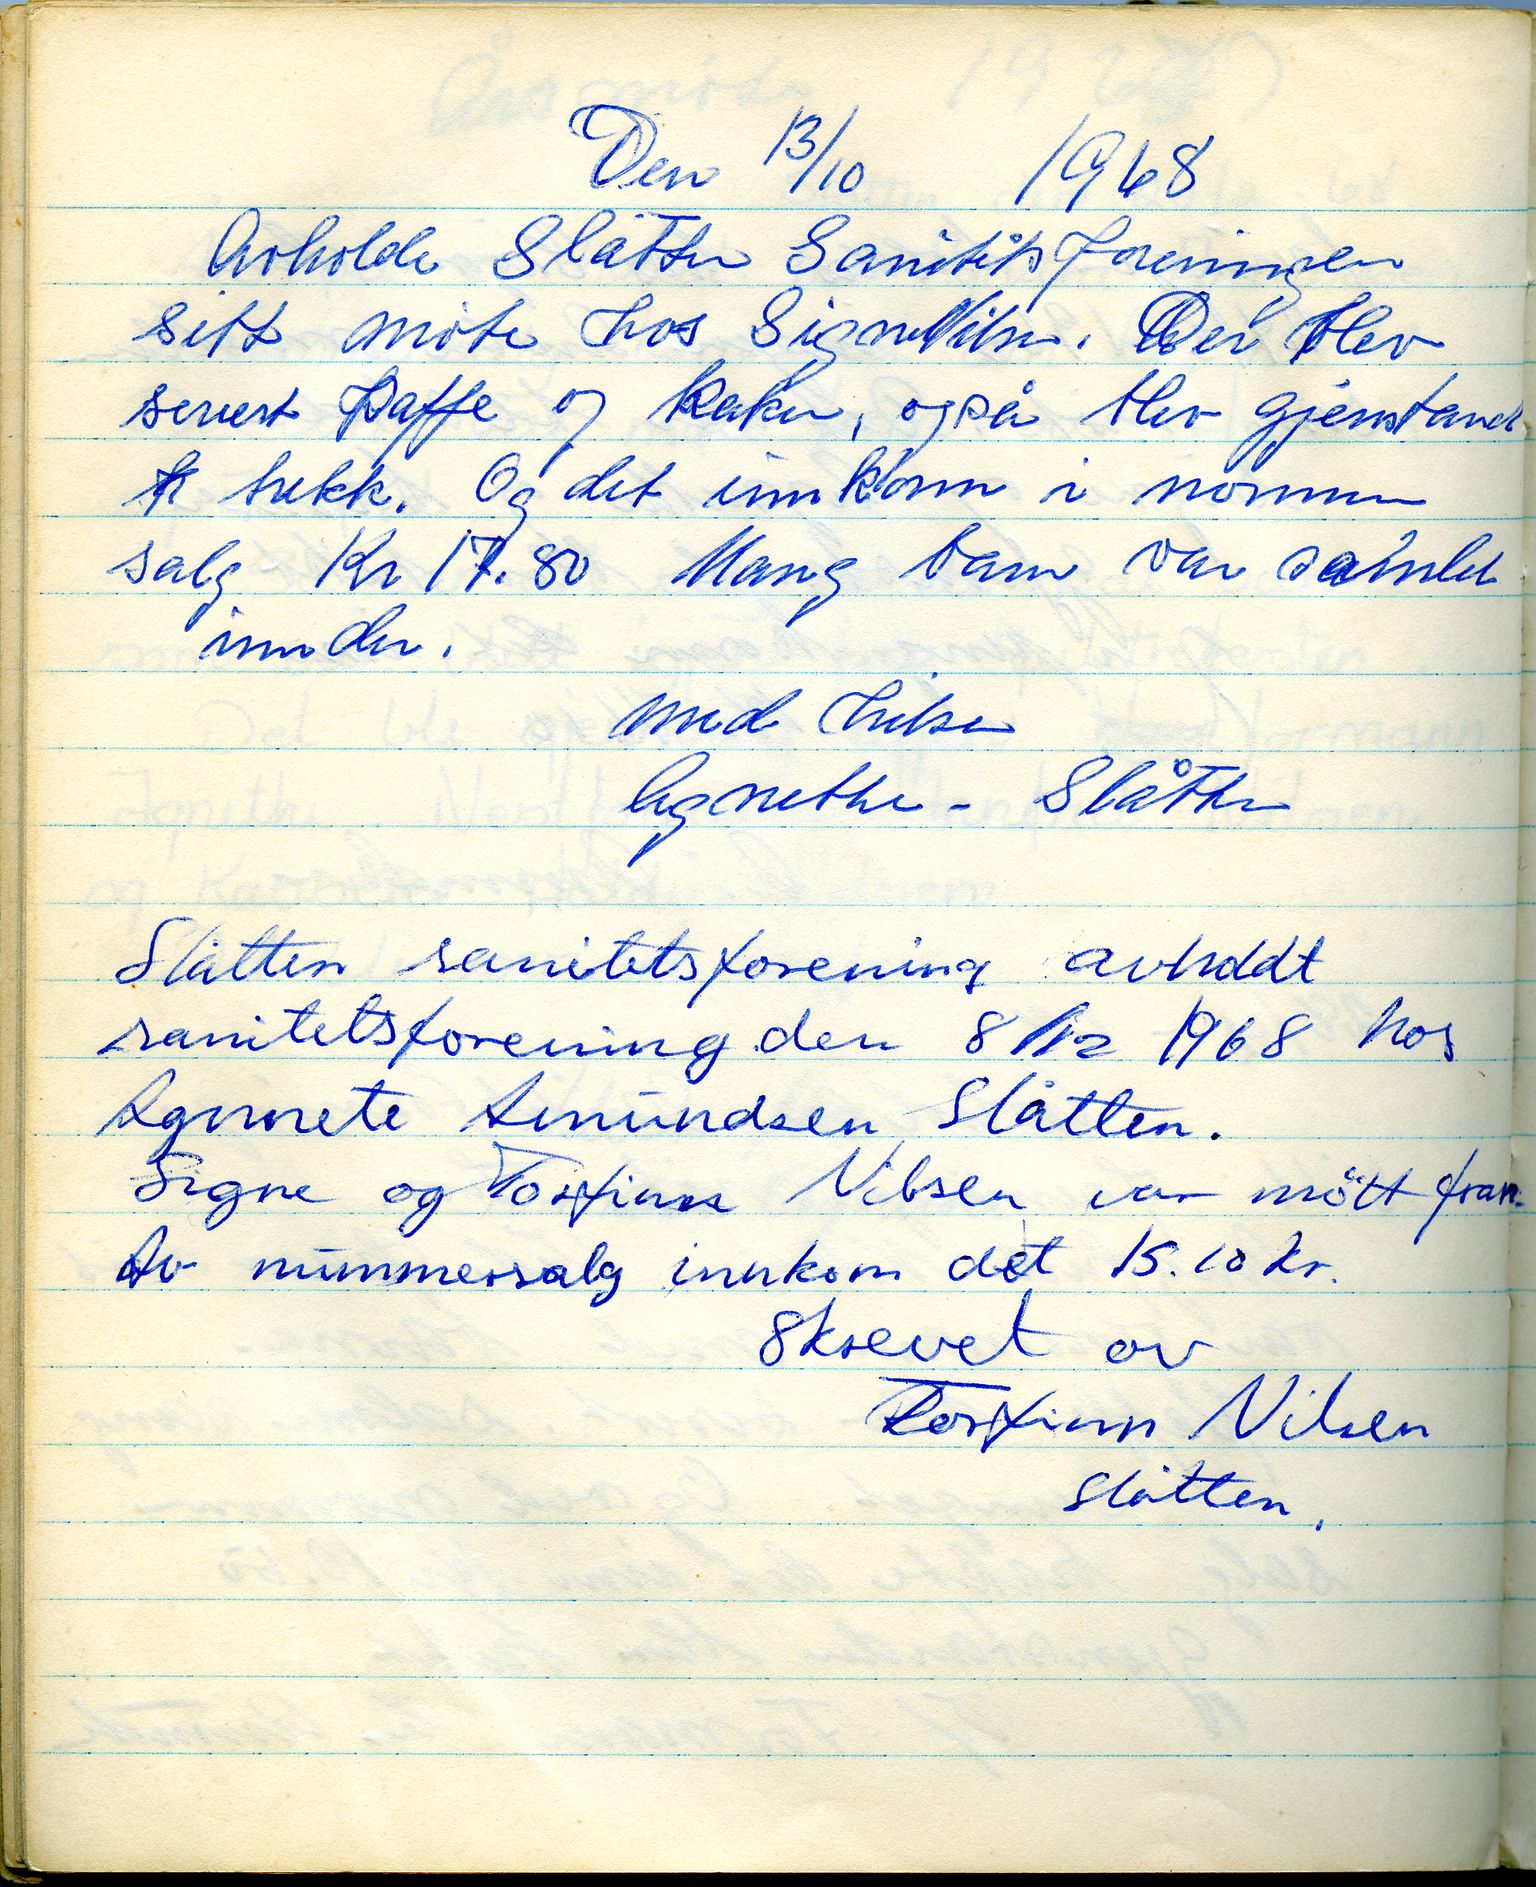 Den 13/10 1968
Avholde Slåtten Sanitetsforeningen
sitt møte hos Signe Nilsn. Der blev
servert Kaffe og kaker, også blev gjenstand
trekk. Og det innkom i nommer
salg Kr 17.80 Mang barn var samlet
inn der.
med hilsen
Agnethe - Slåtten
Slåtten sanitetsforening avholdt
sanitetsforening den 8/12 1968 hos
Agnnete Amundsen Slåtten.
Signe og Torfinn Nilsen var mött fram.
Av nummersalg innkom det 15.10 kr.
Skrevet av
Torfinn Nilsen
Slåtten.